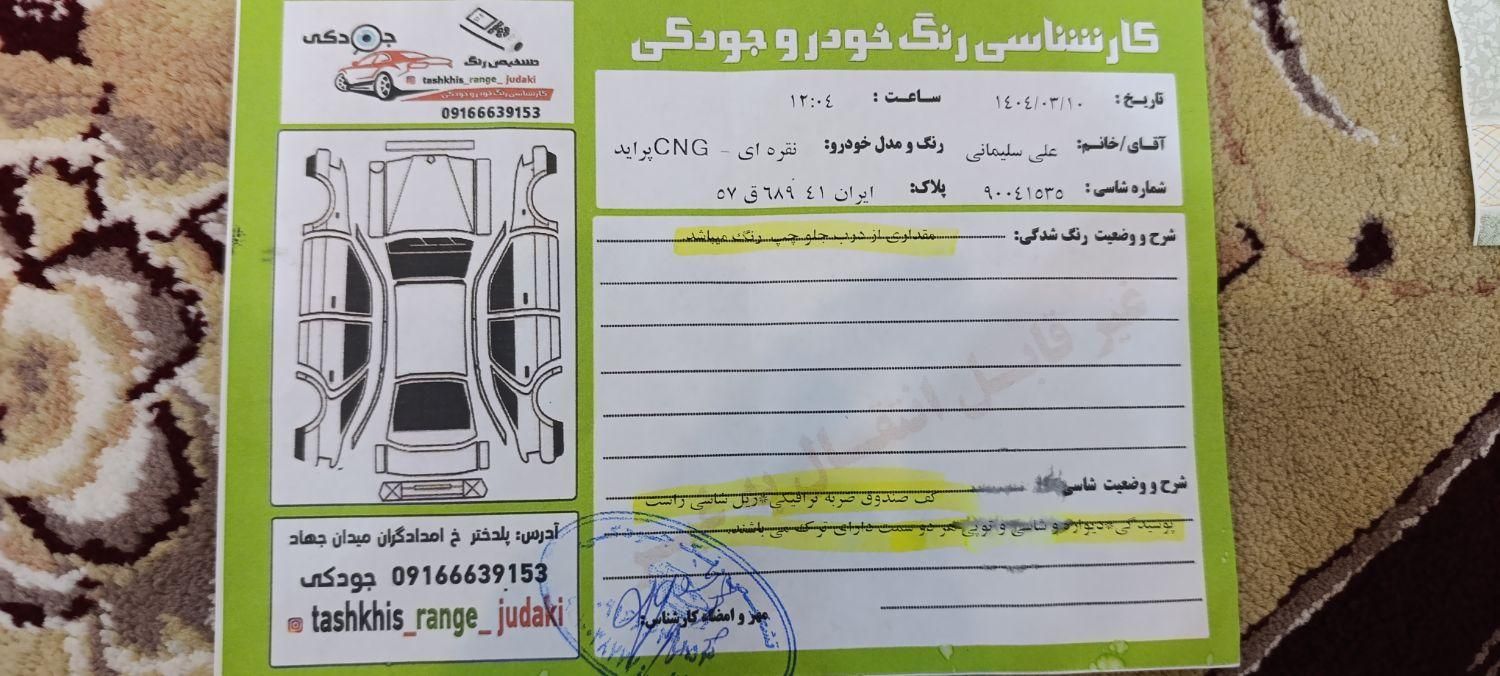 کارشناسی رنگ خودرو جودکی
جودکی
تشخیص رنگ
tashkhis_range_ judaki
کارشناسی رنگ خودرو جودکی
09166639153
تاریخ: ١٤٠٤/٠٣/١٠ ساعت: ١٢:٠٤
آقای/خانم: علی سلیمانی رنگ و مدل خودرو: نقره ای - CNG پراید
شماره شاسی: ٩٠٠٤١٥٣٥ پلاک: ایران ٤١ ٦٨٩ ق ٥٧
شرح و وضعیت رنگ شدگی: مقداری از درب جلو چپ رنگ میباشد.
غیر قابل انتقال
شرح و وضعیت شاسی
کف صندوق ضربه ترافیکی*ریل شاسی راست
پوسیدگی*دیواره و شاسی و توپی هر دو سمت دارای ترک می باشند.
مهر و امضاء کارشناس:
آدرس: پلدختر خ امدادگران میدان جهاد
09166639153 جودکی
tashkhis_range_ judaki